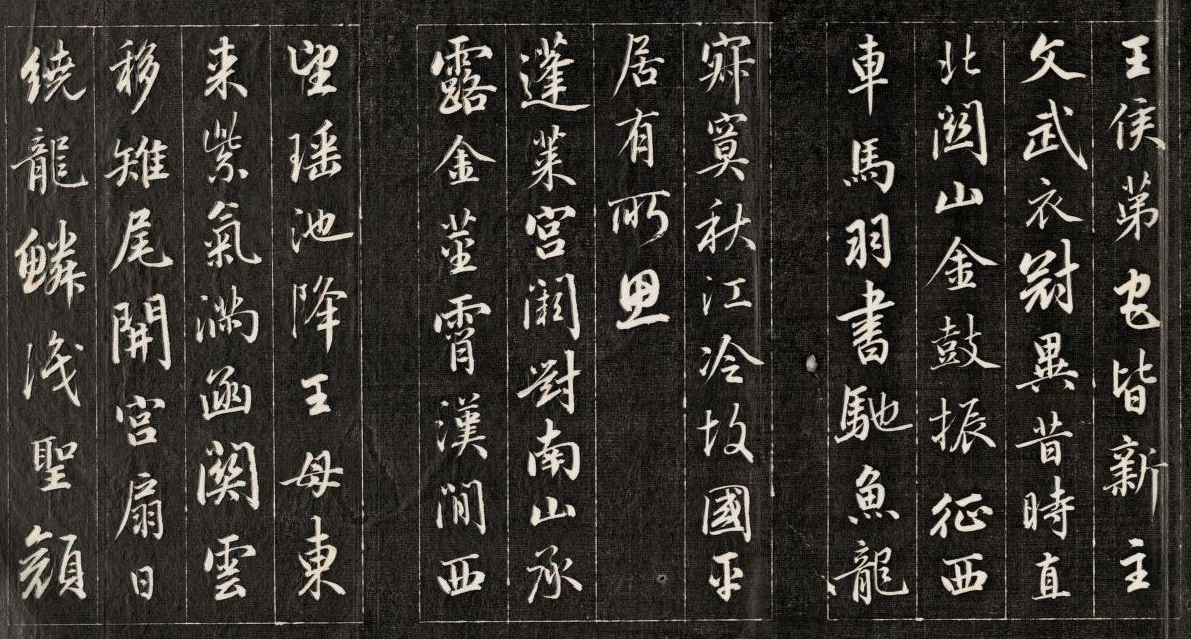 王侯第宅皆新主
文武衣冠異昔時直
北關山金鼓振征西
車馬羽書馳魚龍
寂寞秋江冷故國平
居有所思
蓬萊宮闕對南山承
露金莖霄漢間西
望瑤池降王母東
来紫氣滿函關雲
移雉尾開宮扇日
繞龍鱗識聖顏